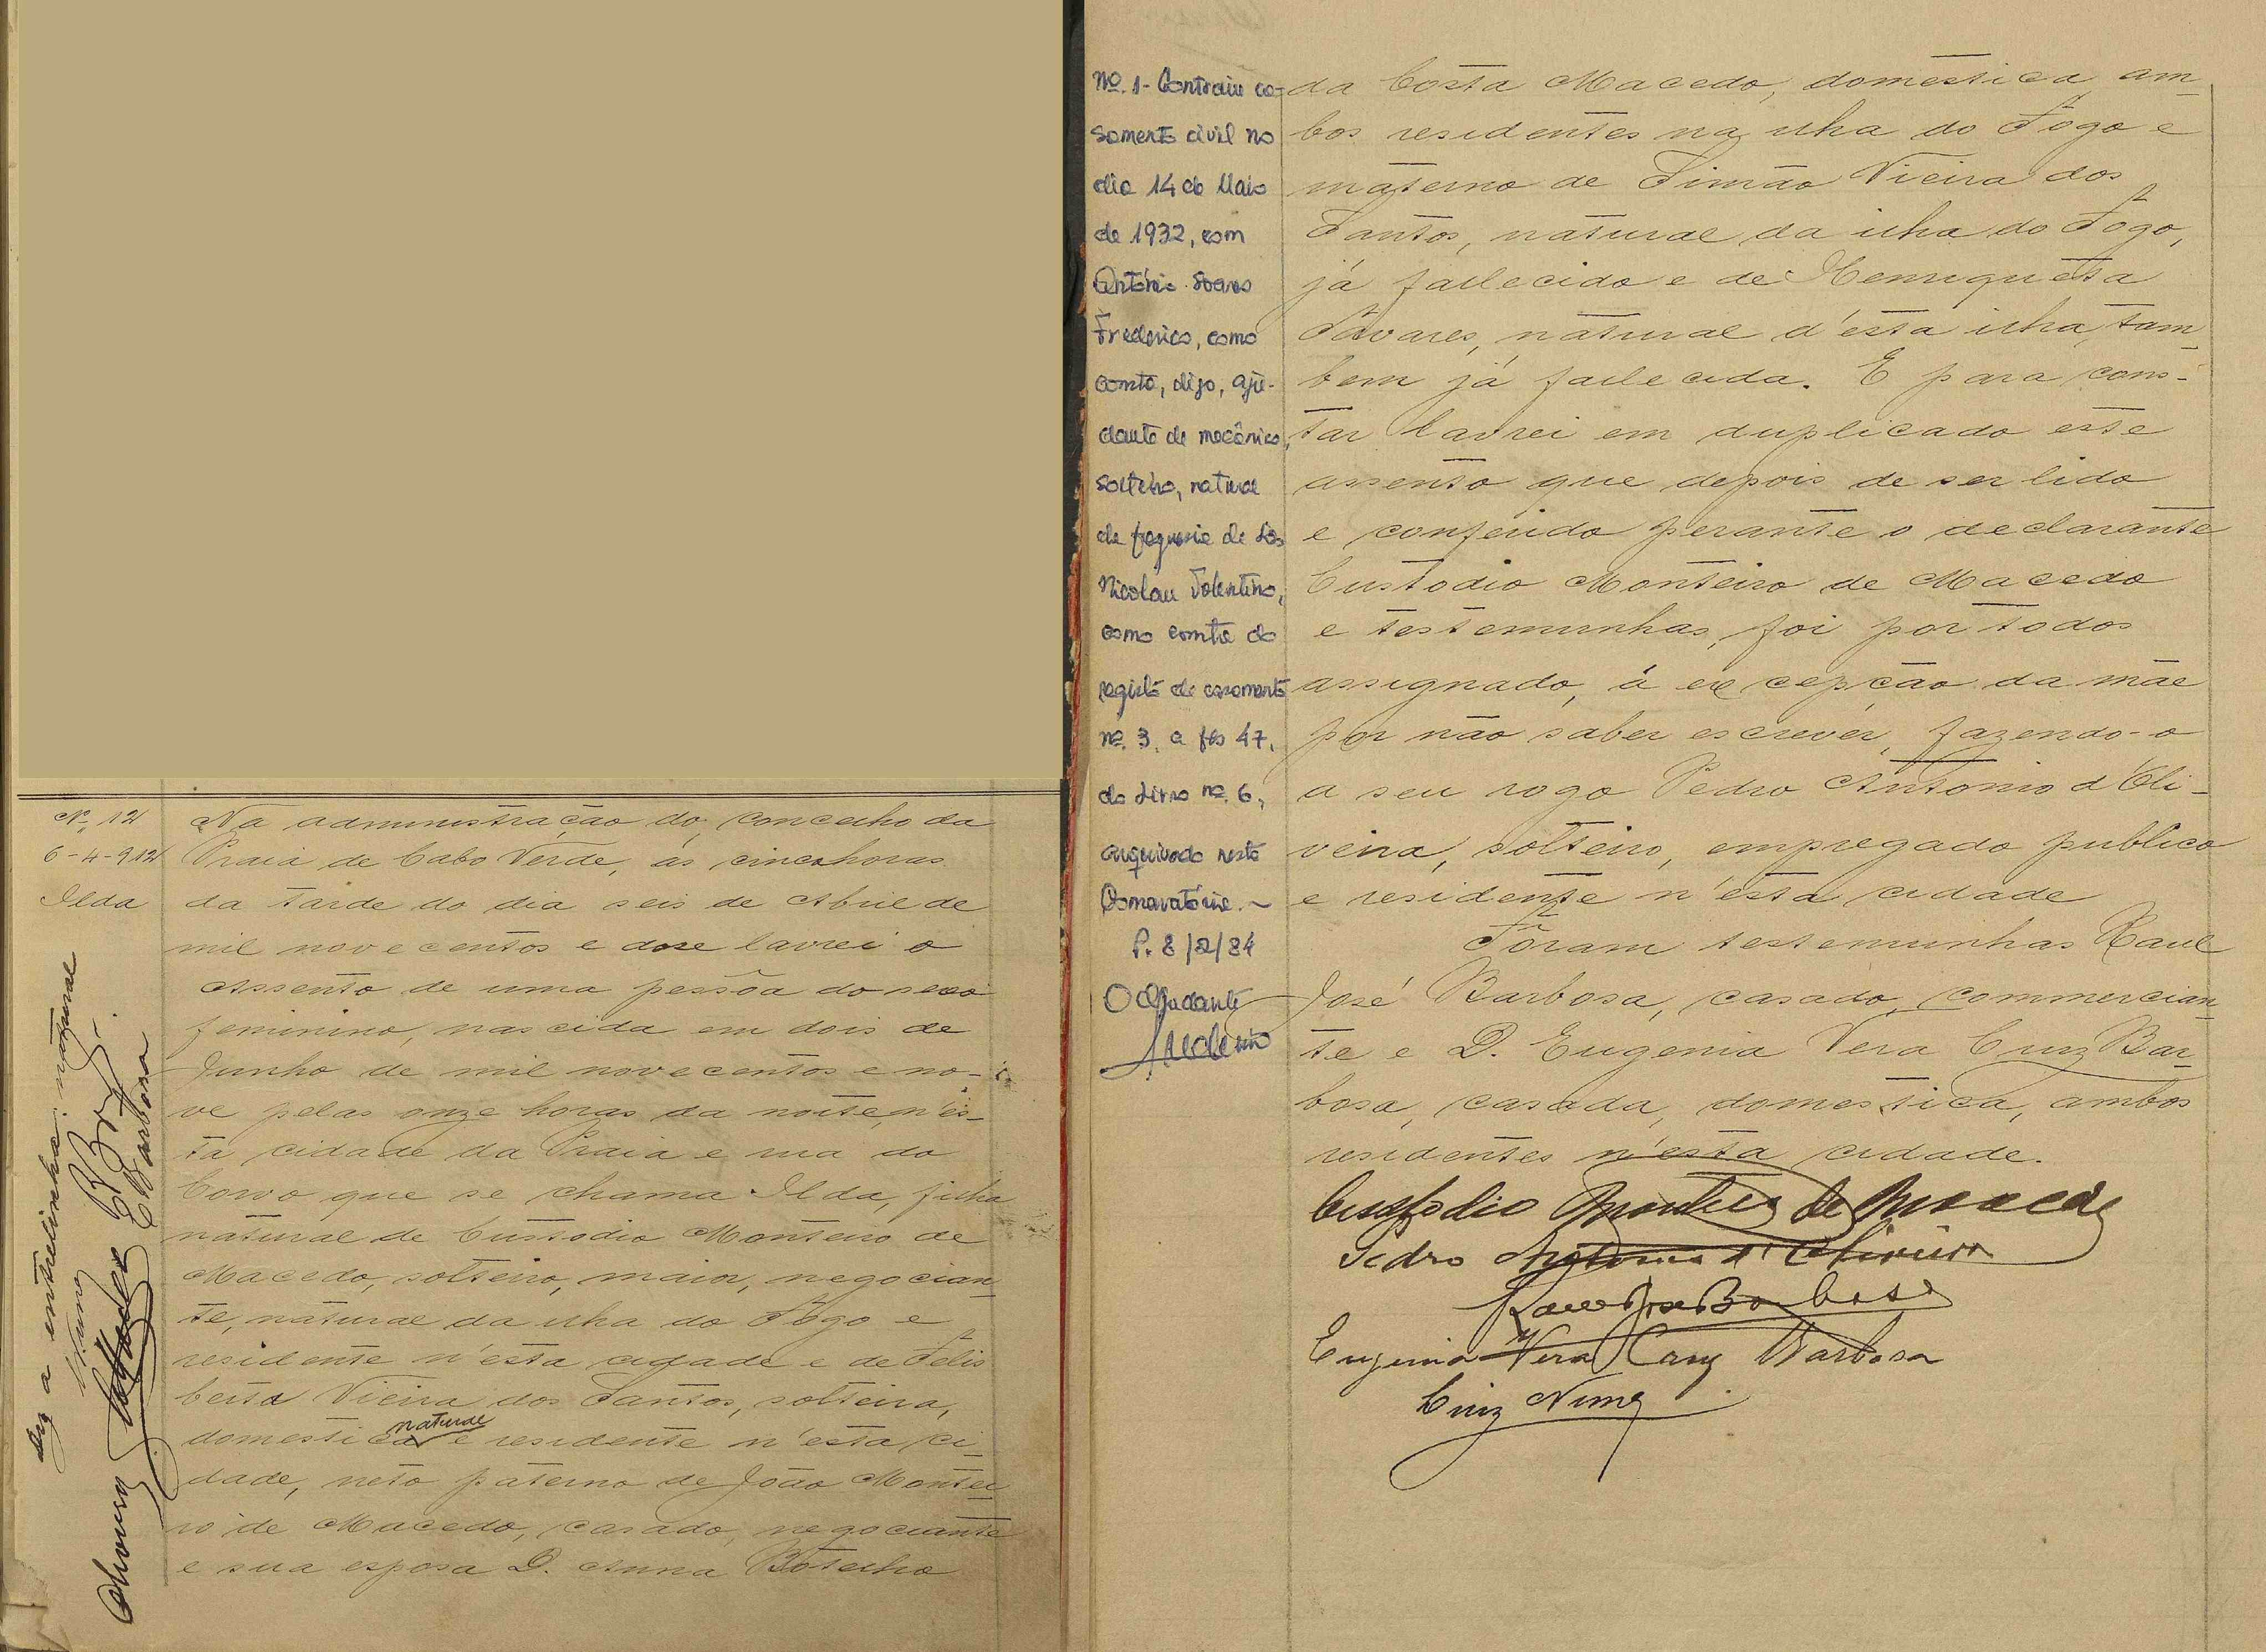 Nº 12
6-4-912
Ilda
Na administração do concelho da
Praia de Cabo Verde, ás cinco horas
da tarde do dia seis de Abril de
mil novecentos e dose lavrei o
Assento de uma pessôa do sexo
feminino, nascida em dois de
Junho de mil novecentos e no-
ve pelas onze horas da noite, n'es-
ta cidade da Praia e rua do
Corvo que se chama Ilda, filha
natural de Custodio Monteiro de
Macedo, solteiro, maior, negocian-
te, natural da ilha do Fôgo e
residente n'esta cidade e de Felis
berta Vieira dos Santos, solteira,
domestica natural e residente n'esta ci-
dade, neto paterno de João Montei-
ro de Macedo, casado, negociante
e sua esposa D. Anna Botelho
diz a entrelinha: natural
Nunes
Oliveira
EBarbosa
Nº. 1- Contraiu ca-
samento civil no
dia 14 de Maio
de 1932, com
António Soares
Frederico, como
consta, digo, aju-
dante de mecânico,
solteiro, natural
da freguesia de São
Nicolau Tolentino,
como consta do
registo de casamento
nº. 3, a fls 47,
do Livro nº. 6,
arquivado nesta
Conservatória. ~
P. 8/2/84
O Ajudante
da Costa Macedo, domestica, am-
bos residentes na ilha do Fôgo e
materno de Simão Vieira dos
Santos, natural da ilha do Fôgo,
já fallecido e de Henriqueta
Tavares, natural d'esta ilha, tam-
bem já fallecida. E para cons-
tar lavrei em duplicado este
assento que depois de ser lido
e conferido perante o declarante
Custodio Monteiro de Macedo
e testemunhas, foi por todos
assignado, á excepção da mãe
por não saber escrever, fazendo-o
a seu rogo Pedro Antonio d'Oli-
veira, solteiro, empregado publico
e residente n'esta cidade
Fôram testemunhas Raul
José Barbosa, casado, commercian-
te e D. Eugenia Vera Cruz Bar-
bosa, casada, domestica, ambos
residentes n'esta cidade.
Custodio Monteiro de Macedo
Pedro Antonio d'Oliveira
Raul Jose Barbosa
Eugenia Vera Cruz Barbosa
Luiz Nunes